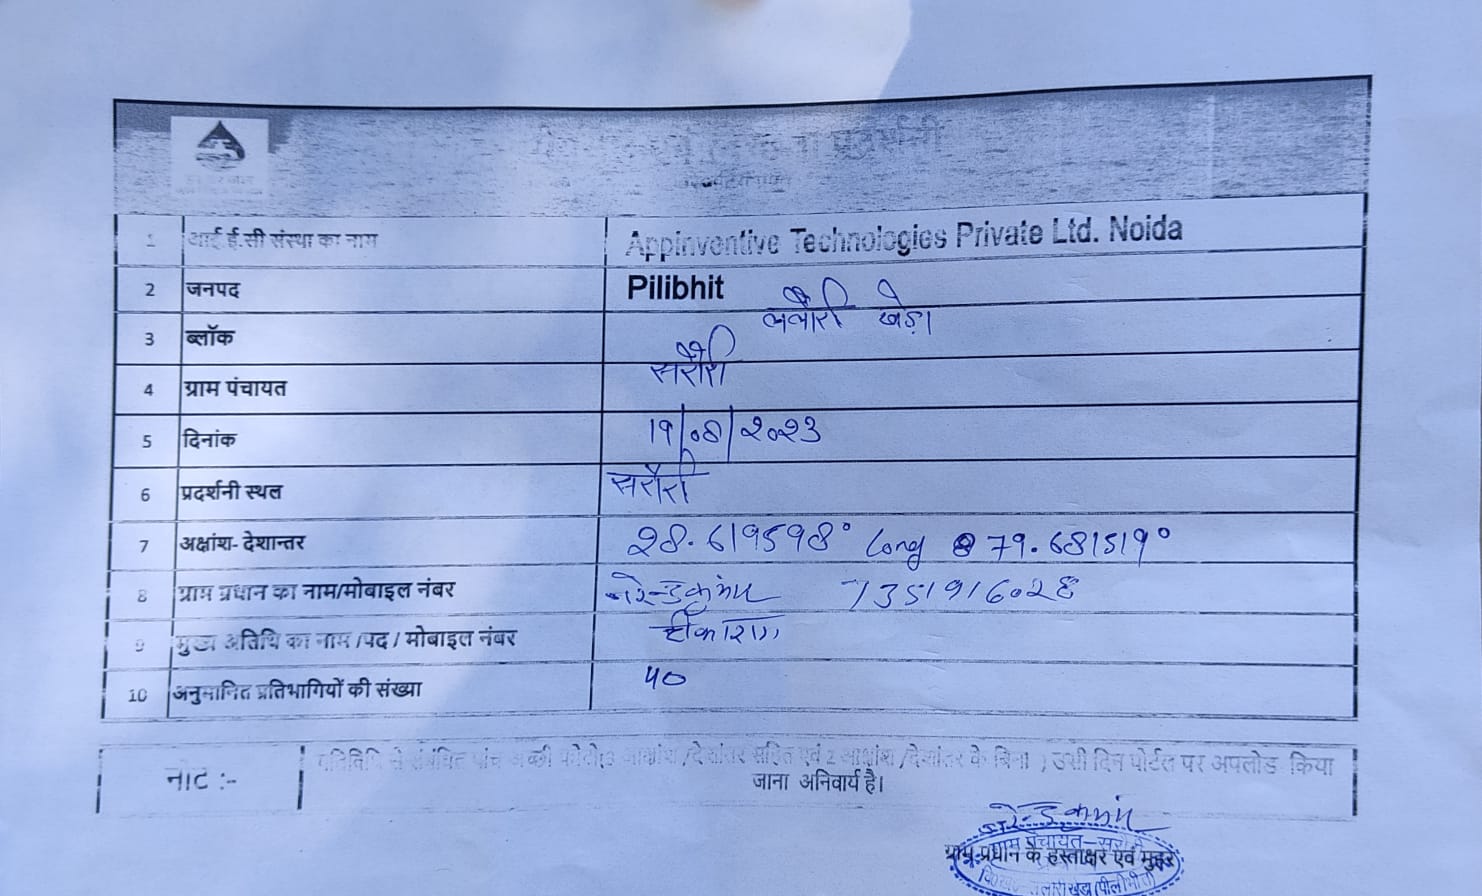 प्रदर्शनी
1 आई.ई.सी संस्था का नाम Appinventive Technologies Private Ltd. Noida
2 जनपद Pilibhit
3 ब्लॉक ललौरी खेड़ा
4 ग्राम पंचायत सरौरी
5 दिनांक 19/08/2023
6 प्रदर्शनी स्थल सरौरी
7 अक्षांश- देशान्तर 28.619598° long 79.681519°
8 ग्राम प्रधान का नाम/मोबाइल नंबर नरेन्द्र कुमार
9 मुख्य अतिथि का नाम /पद / मोबाइल नंबर टीकाराम
10 अनुमानित प्रतिभागियों की संख्या 40
नोट :- गतिविधि से संबंधित पांच अच्छी फोटो(3 आक्षांश /देशांतर सहित एवं 2 आक्षांश /देशांतर के बिना ) उसी दिन पोर्टल पर अपलोड किया
जाना अनिवार्य है।
नरेन्द्र कुमार
ग्राम पंचायत-
ग्राम प्रधान के हस्ताक्षर एवं मुहर
(पीलीभीत)